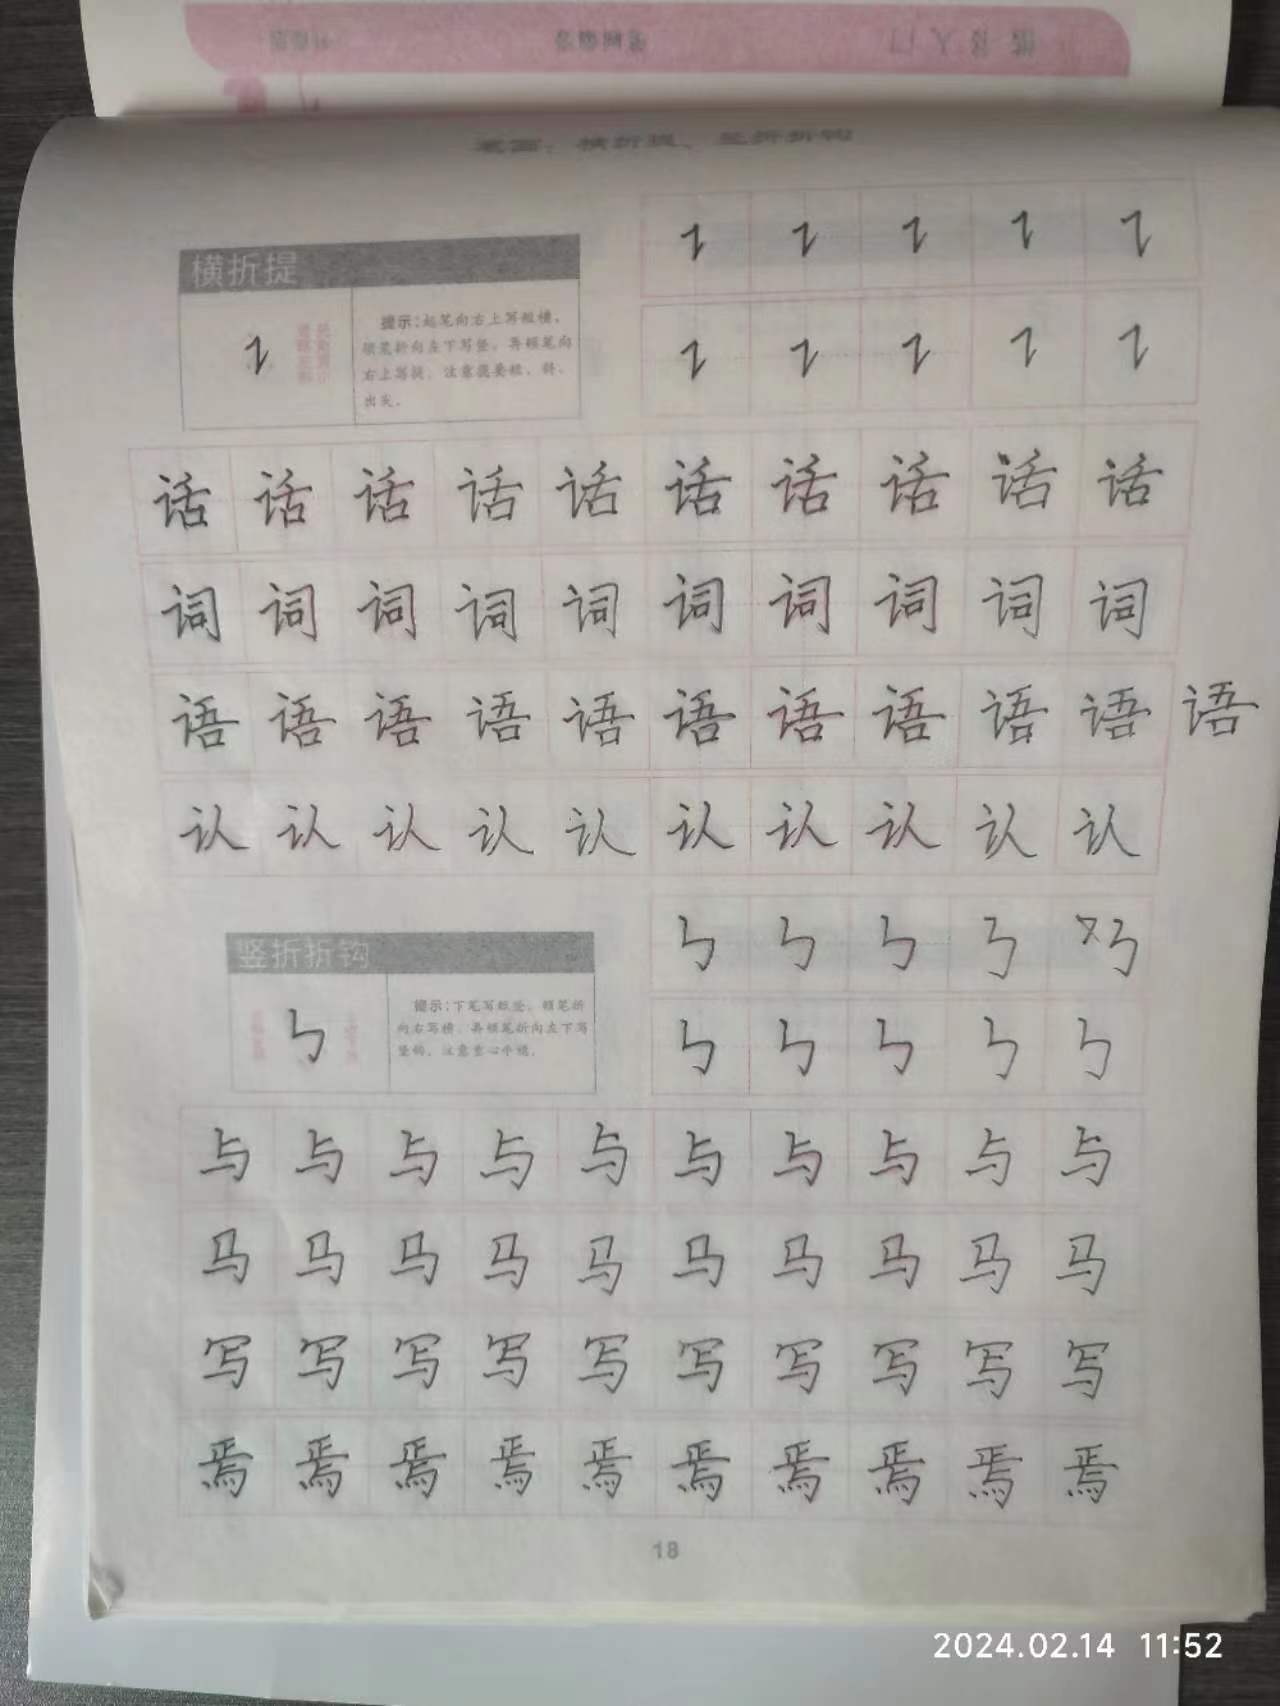 笔画：横折提、竖折折钩
横折提
提示：起笔向右上写短横，
顿笔折向左下写竖，再顿笔向
右上写提，注意提要短、斜、
出尖。
话话话话话话话话话话
词词词词词词词词词词
语语语语语语语语语语语
认认认认认认认认认认
竖折折钩
提示：下笔写短竖，顿笔折
向右写横，再顿笔折向左下写
竖钩，注意重心平稳。
与与与与与与与与与与
马马马马马马马马马马
写写写写写写写写写写
焉焉焉焉焉焉焉焉焉焉
18
2024.02.14 11:52